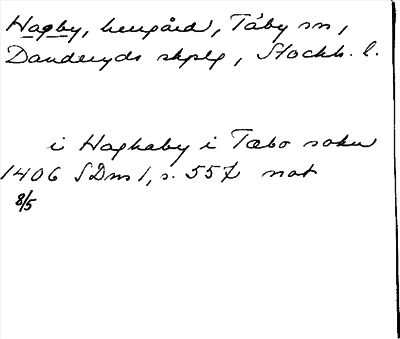 Hagby, herrgård, Täby sn,
Danderyds skplg, Stockh. l.
i Haghaby i Tæbo sokn
1406 SDns 1, s. 557 not
8/5